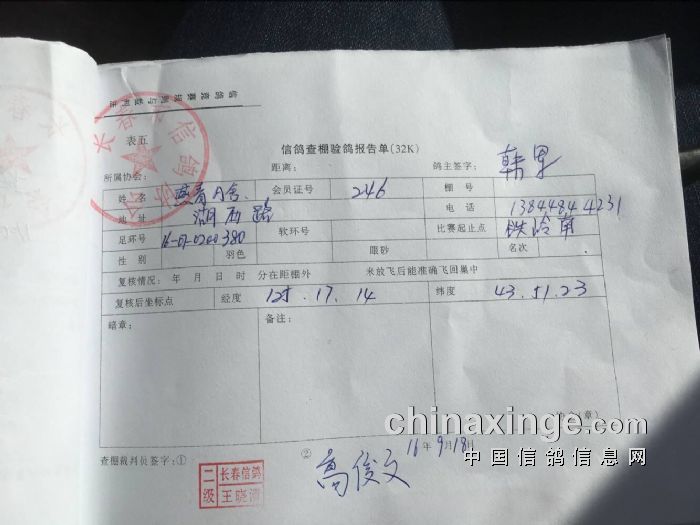 信鸽竞赛规则与裁判法
长春市信鸽协会
表五
信鸽查棚验鸽报告单(32K)
所属协会: 距离: 鸽主签字: 韩果
姓名 爱青鸽舍 会员证号 246 棚号
地址 湖西路 电话 13844844231
足环号 16-07-0200380 软环号 比赛起止点 铁岭南
性别 羽色 眼砂 名次
复核情况: 年 月 日 时 分在距棚外 米放飞后能准确飞回巢中
复核后坐标点 经度 125.17.14 纬度 43.51.23
暗章: 备注:
(章)
16年9月18日
查棚裁判员签字:① ② 高俊文
二级 长春信鸽 王晓
chinaxinge.com
中国信鸽信息网